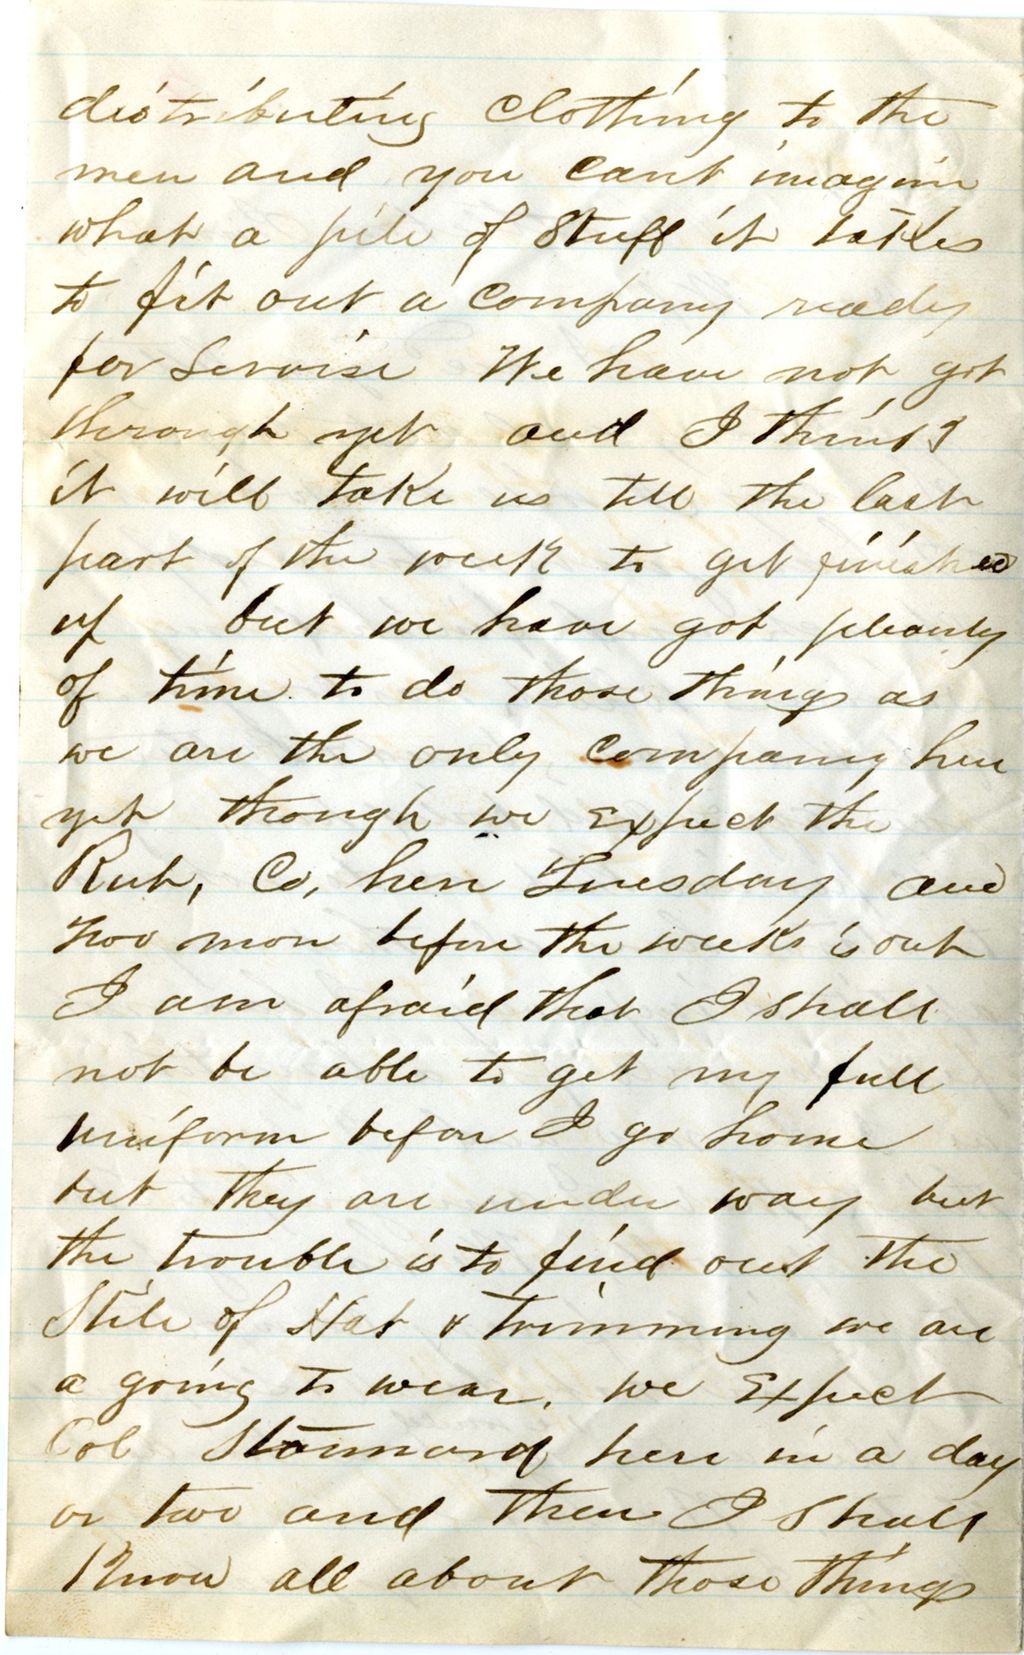 distributing clothing to the
men and you cant imagin
what a pile of stuff it takes
to fit out a company ready
for servise We have not got
through yet and I think
it will take us till the last
part of the week to get finished
up but we have got pleanty
of time to do those things as
we are the only company here
yet though we expect the
Rut, Co, here Tuesday and
two more before the weeks is out
I am afraid that I shall
not be able to get my full
uniform before I go home
but they are under way but
the trouble is to find out the
Stile of Hat & trimming we are
a going to wear. we Expect
Col Stannard here in a day
or two and then I shall
Know all about those things